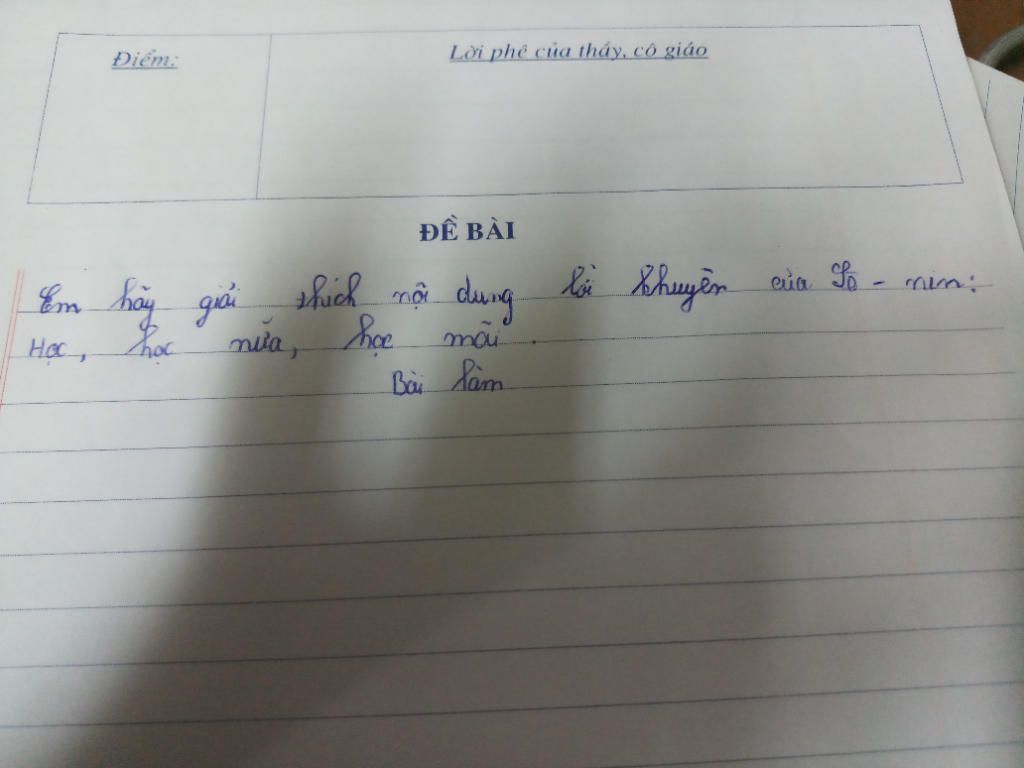 Điểm:
Lời phê của thầy, cô giáo
ĐỀ BÀI
Em hãy giải thích nội dung lời khuyên của Lê - nin:
Học, học nữa, học mãi.
Bài làm